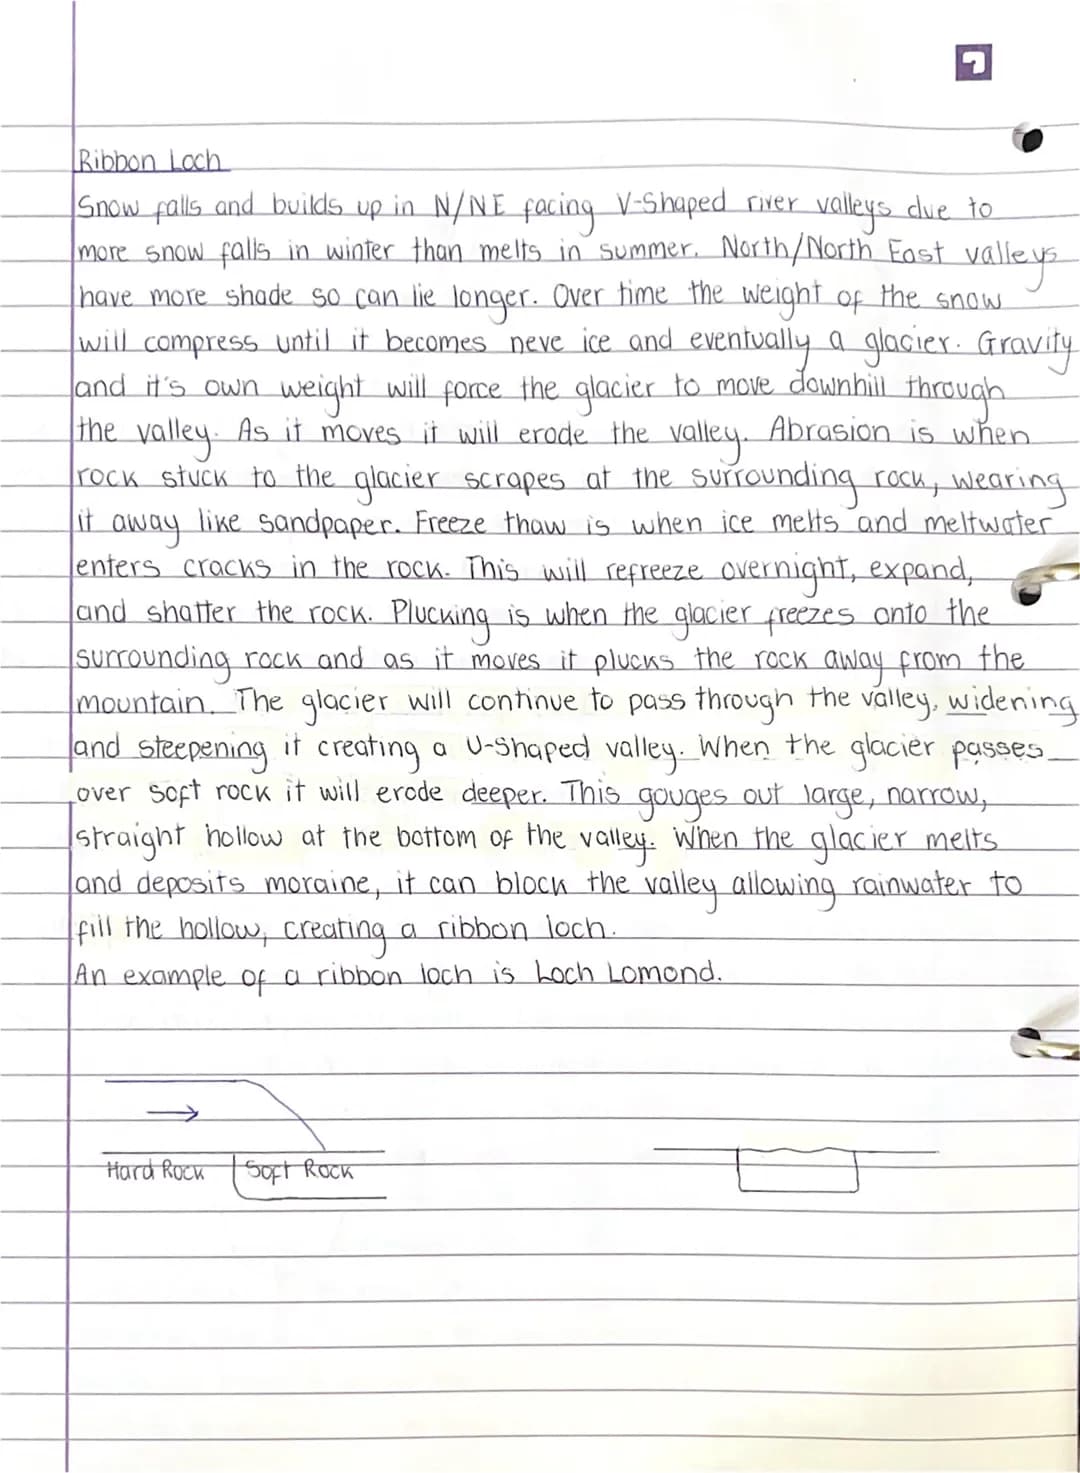 Ribbon Loch
Snow falls and builds up in N/NE facing V-Shaped river valleys due to
more snow falls in winter than melts in summer. North/North East valleys
have more shade so can lie longer. Over time the weight of the snow
will compress until it becomes neve ice and eventually a glacier. Gravity
and it's own weight will force the glacier to move downhill through
the valley. As it moves it will erode the valley. Abrasion is when
rock stuck to the glacier scrapes at the surrounding rock, wearing
it away like sandpaper. Freeze thaw is when ice melts and meltwater
enters cracks in the rock. This will refreeze overnight, expand,
and shatter the rock. Plucking is when the glacier freezes onto the
surrounding rock and as it moves it plucks the rock away from the
mountain. The glacier will continue to pass through the valley, widening
and steepening it creating a U-Shaped valley. When the glacier passes
over soft rock it will erode deeper. This gouges out large, narrow,
straight hollow at the bottom of the valley. When the glacier melts
and deposits moraine, it can block the valley allowing rainwater to
fill the hollow, creating a ribbon loch.
An example of a ribbon loch is Loch Lomond.
Hard Rock Soft Rock